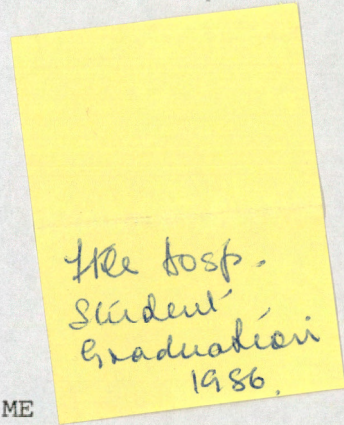 Hosp.
Student
Graduation
1986.
ME